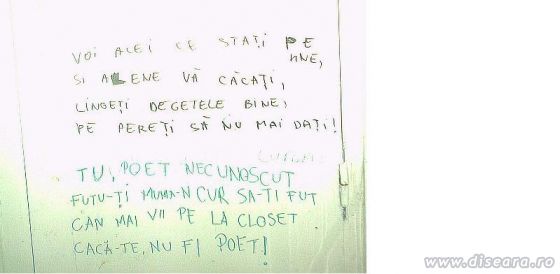 VOI ACEI CE STAȚI PE
VINE,
SI ALENE VĂ CĂCAȚI,
LINGEȚI DEGETELE BINE,
PE PEREȚI SĂ NU MAI DAȚI!
TU, POET NECUNOSCUT
FUTU-ȚI MUMA-N CUR SA-TI FUT
CAN MAI VII PE LA CLOSET
CACĂ-TE, NU FI POET!
www.diseara.ro